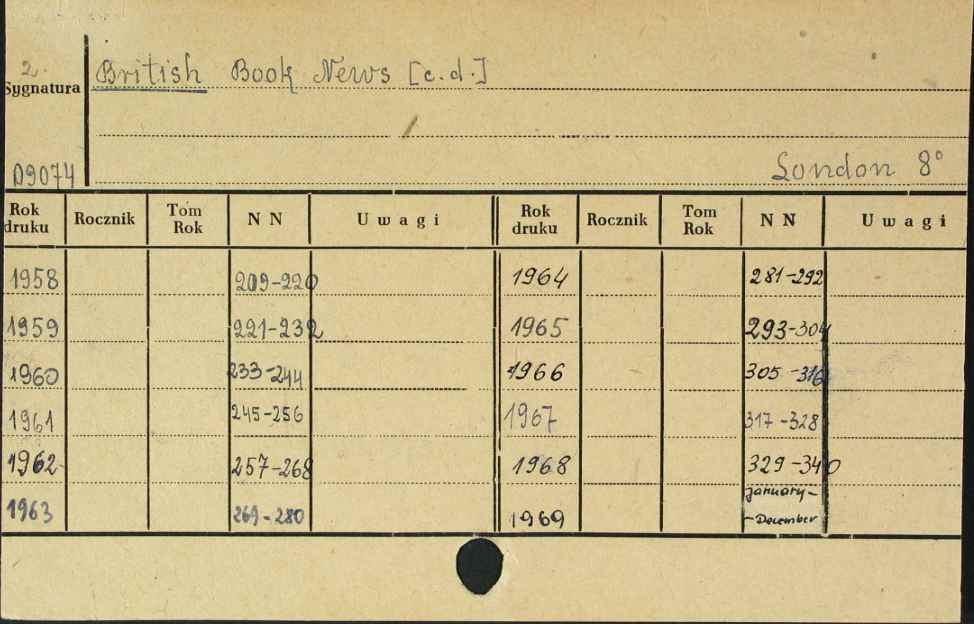 2.
Sygnatura British Book News [c.d.]
D9074 London 8°
Rok druku Rocznik Tom Rok N N Uwagi Rok druku Rocznik Tom Rok N N Uwagi
1958 209-220 1964 281-292
1959 221-232 1965 293-304
1960 233-244 1966 305-316
1961 245-256 1967 317-328
1962 257-268 1968 329-340
1963 269-280 1969 january-
-December